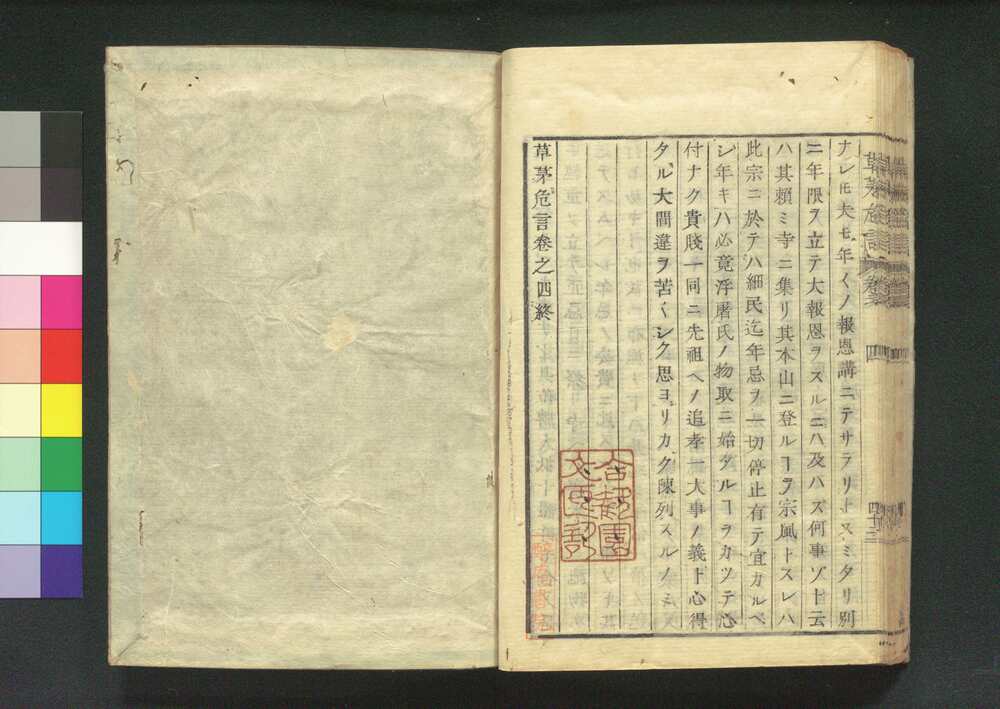 ナレ𪜈夫モ年〱ノ報恩講ニテサラリトスミタリ別
ニ年限ヲ立テ大報恩ヲスルニハ及ハズ何事ゾト云
ハ其頼ミ寺ニ集リ其本山ニ登ルヿヲ宗風トスレハ
此宗ニ於テハ細民迄年忌ヲ一切停止有テ宜カルベ
シ年キハ必竟浮屠氏ノ物取ニ始タルヿヲカツテ心
付ナク貴賤一同ニ先祖ヘノ追孝一大事ノ義ト心得
タル大間違ヲ苦〱シク思ヨリカク陳列スルノミ
草茅危言卷之四終